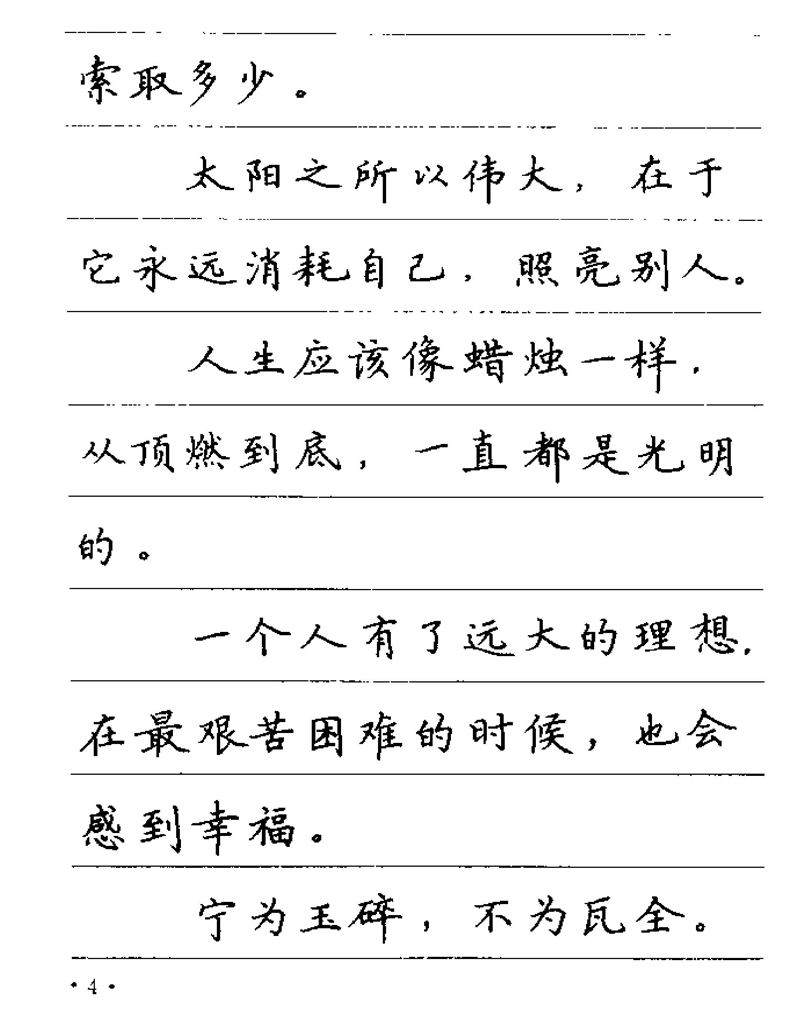 索取多少。
太阳之所以伟大，在于
它永远消耗自己，照亮别人。
人生应该像蜡烛一样，
从顶燃到底，一直都是光明
的。
一个人有了远大的理想，
在最艰苦困难的时候，也会
感到幸福。
宁为玉碎，不为瓦全。
·4·